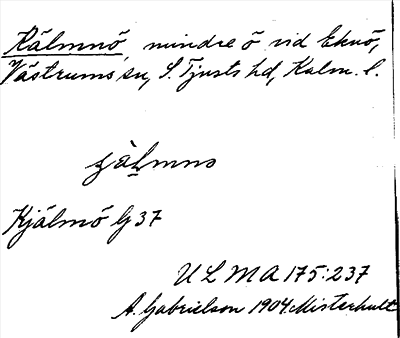 Kälmnö, mindre ö vid Eknö,
Västrums sn, S. Tjusts hd, Kalm. l.
Kjälmö G 37
ULMA 175:237
A. Gabrielson 1904. Misterhult